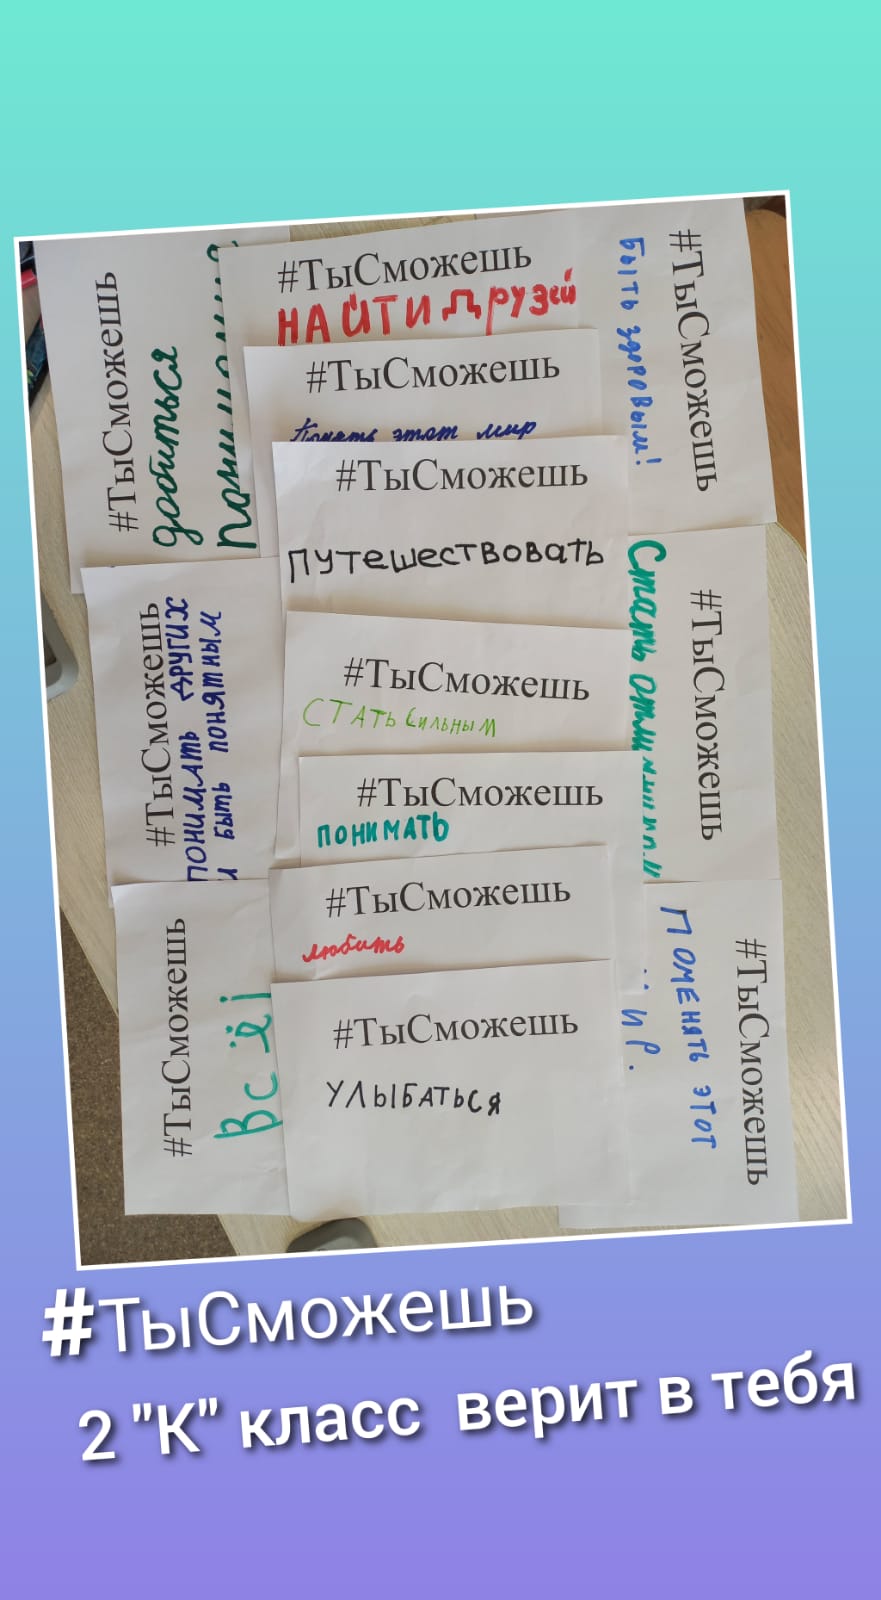 #ТыСможешь
добиться
#ТыСможешь
НАЙТИ ДРУЗЕЙ
#ТыСможешь
Быть здоровым!
#ТыСможешь
Понять этот мир
#ТыСможешь
ПУТЕШЕСТВОВАТЬ
#ТыСможешь
ПОНИМАТЬ ДРУГИХ
И БЫТЬ ПОНЯТНЫМ
#ТыСможешь
СТАТЬ СИЛЬНЫМ
#ТыСможешь
Стать
#ТыСможешь
ПОНИМАТЬ
#ТыСможешь
любить
#ТыСможешь
Всё!
#ТыСможешь
УЛЫБАТЬСЯ
#ТыСможешь
ПОМЕНЯТЬ ЭТОТ
#ТыСможешь
2 "К" класс верит в тебя